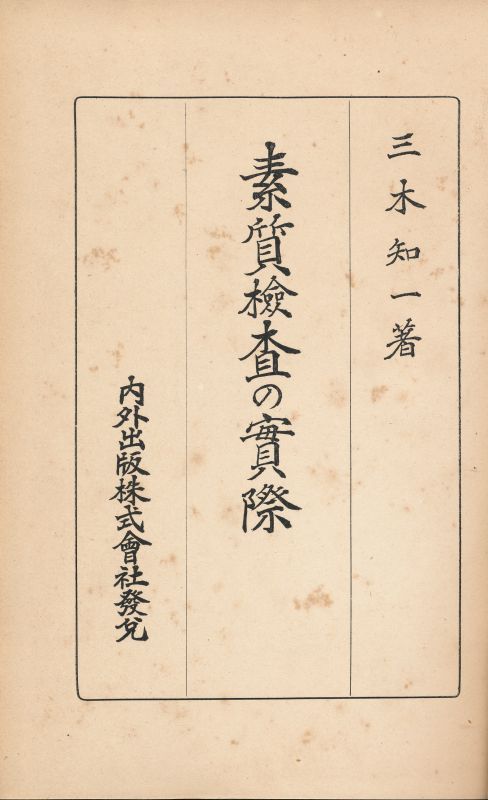 三木知一著
素質檢査の實際
內外出版株式會社發兌